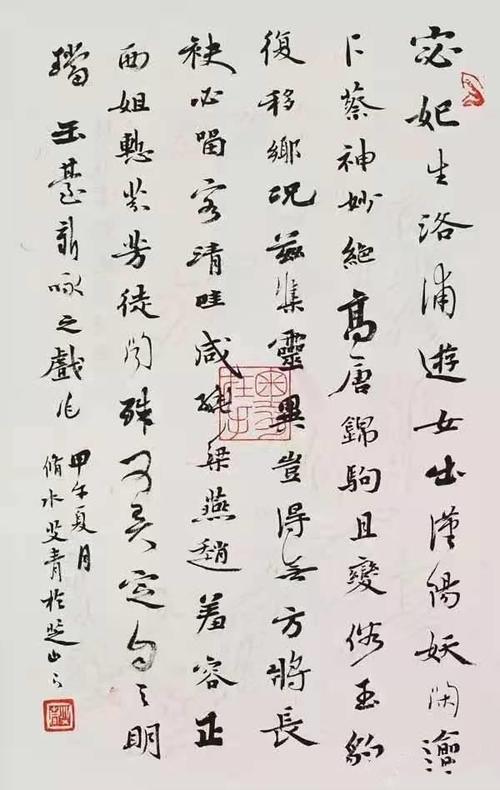 宓妃生洛浦遊女出漢陽妖閑逾
下蔡神妙絕高唐錦駒且變俗玉豹
復移鄉況茲集靈異豈得無方將長
袂必留客清哇咸繞梁燕趙羞容止
西姐慙芬芳徒聞殊可弄定自乏明
璫 玉臺新詠之戲作
甲午夏月
脩水 青於 山